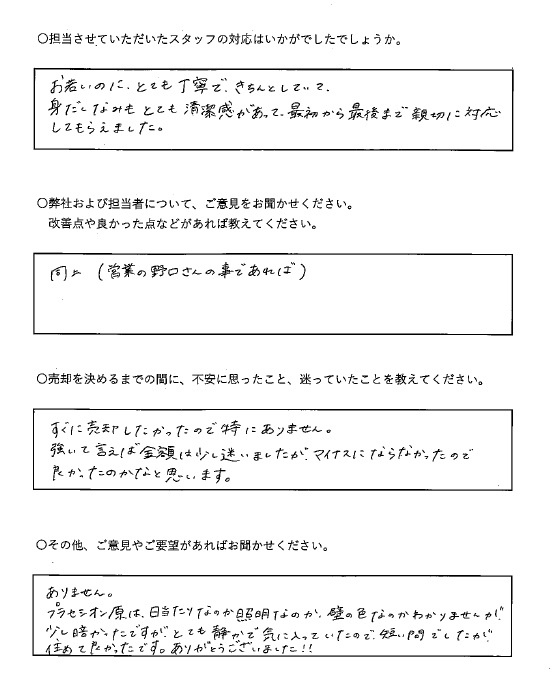 ○担当させていただいたスタッフの対応はいかがでしたでしょうか。
お若いのに、とても丁寧で、きちんとしていて、
身だしなみもとても清潔感があって、最初から最後まで親切に対応
してもらえました。
○弊社および担当者について、ご意見をお聞かせください。
改善点や良かった点などがあれば教えてください。
同上（営業の野口さんの事であれば）
○売却を決めるまでの間に、不安に思ったこと、迷っていたことを教えてください。
すぐに売却したかったので特にありません。
強いて言えば金額は少し迷いましたが、マイナスにならなかったので
良かったのかなと思います。
○その他、ご意見やご要望があればお聞かせください。
ありません。
プラセシオン原は、日当たりなのか照明なのか、壁の色なのかわかりませんが、
少し暗かったですが、とても静かで気に入っていたので、短い間でしたが
住めて良かったです。ありがとうございました!!